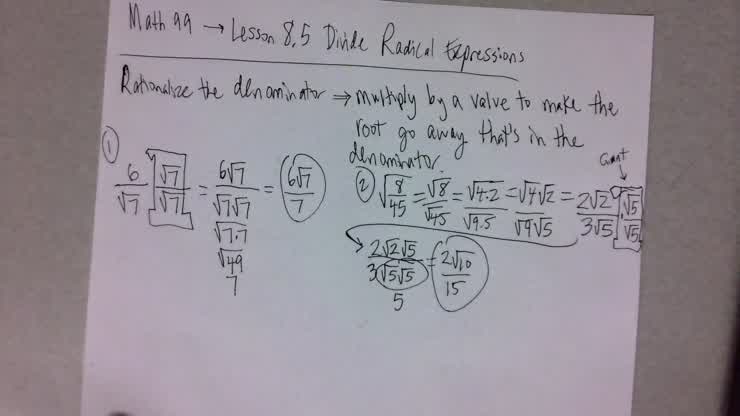 Math 99 → Lesson 8.5 Divide Radical Expressions
Rationalize the denominator ⇒ multiply by a value to make the
root go away that's in the
denominator.
① 6/√7 [√7/√7] = 6√7/√7√7 = 6√7/7
√7·7
√49
7
② √(8/45) = √8/√45 = √4·2/√9·5 = √4√2/√9√5 = 2√2/3√5 [√5/√5]
2√2√5/3√5√5 = 2√10/15
5